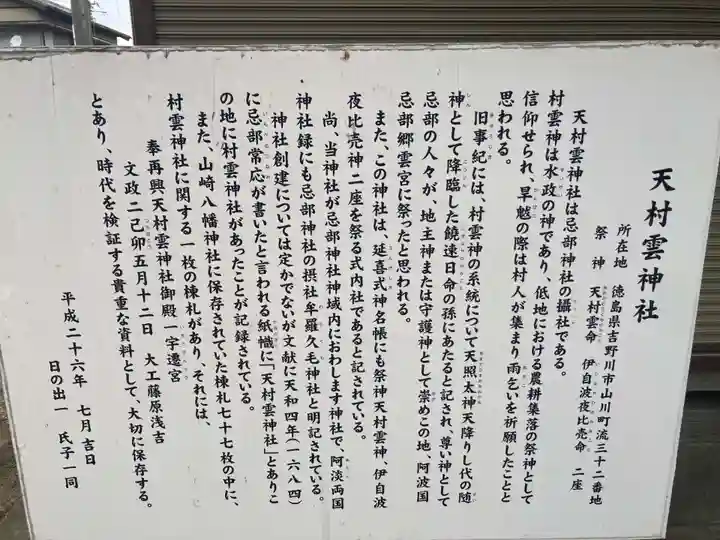 天村雲神社
所在地 徳島県吉野川市山川町流三十二番地
祭神 天村雲命 伊自波夜比売命 二座
天村雲神社は忌部神社の攝社である。
村雲神は水政の神であり、低地における農耕集落の祭神として
信仰せられ、旱魃の際は村人が集まり雨乞いを祈願したことと
思われる。
旧事紀には、村雲神の系統について天照太神天降りし代の随
神として降臨した饒速日命の孫にあたると記され、尊い神として
忌部の人々が、地主神または守護神として崇めこの地、阿波国
忌部郷雲宮に祭ったと思われる。
また、この神社は、延喜式神名帳にも祭神天村雲神、伊自波
夜比売神二座を祭る式内社であると記されている。
尚、当神社が忌部神社神域内におわします神社で、阿淡両国
神社録にも忌部神社の摂社牟羅久毛神社と明記されている。
神社創建については定かでないが文献に天和四年(一六八四)
に忌部常応が書いたと言われる紙幟に「天村雲神社」とありこ
の地に村雲神社があったことが記録されている。
また、山崎八幡神社に保存されていた棟札七十七枚の中に、
村雲神社に関する一枚の棟札があり、それには、
奉再興天村雲神社御殿一宇遷宮
文政二己卯五月十二日 大工藤原浅吉
とあり、時代を検証する貴重な資料として、大切に保存する。
平成二十六年 七月吉日
日の出一 氏子一同